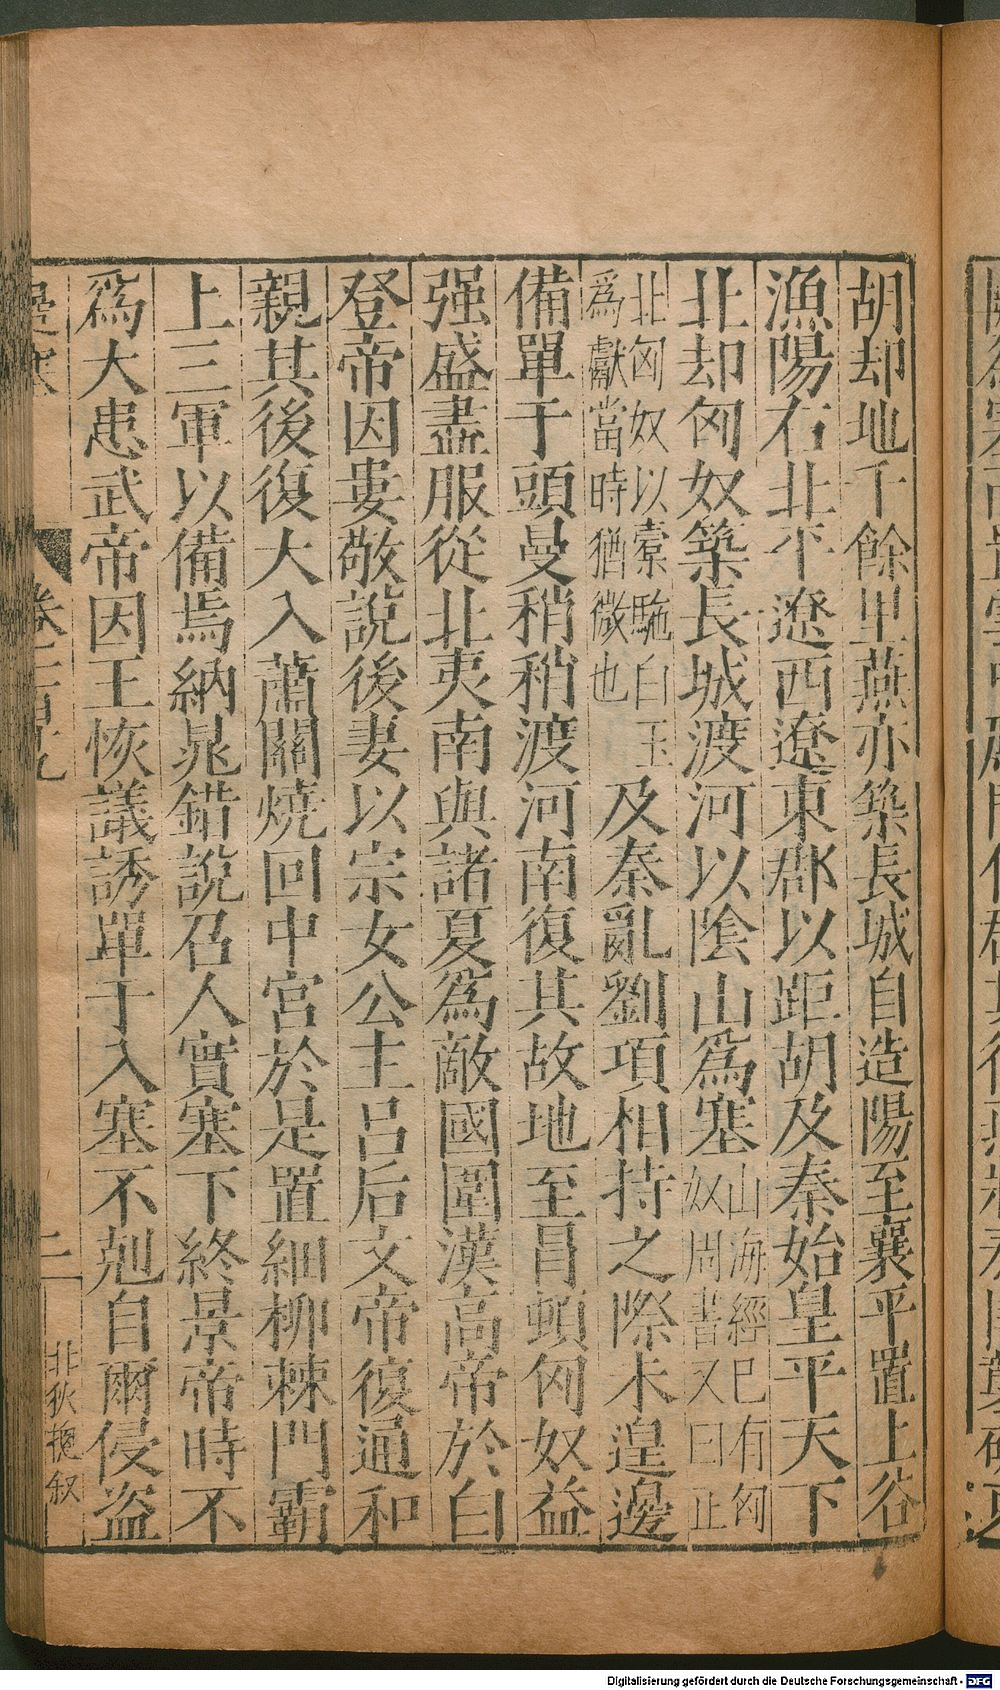 胡却地千餘里燕亦築長城自造陽至襄平置上谷
漁陽右北平遼西遼東郡以距胡及秦始皇平天下
北却匈奴築長城渡河以陰山爲塞山海經已有匈
奴周書又曰正
北匈奴以橐駞白玉
爲獻當時猶微也及秦亂劉項相持之際未遑邊
備單于頭曼稍稍渡河南復其故地至冒頓匈奴益
强盛盡服從北夷南與諸夏爲敵國圍漢高帝於白
登帝因婁敬說後妻以宗女公主呂后文帝復通和
親其後復大入蕭關燒回中宮於是置細柳棘門霸
上三軍以備焉納晁錯說召人實塞下終景帝時不
爲大患武帝因王恢議誘單于入塞不剋自爾侵盗
卷
二
北狄緫叙
Digitalisierung gefördert durch die Deutsche Forschungsgemeinschaft - DFG